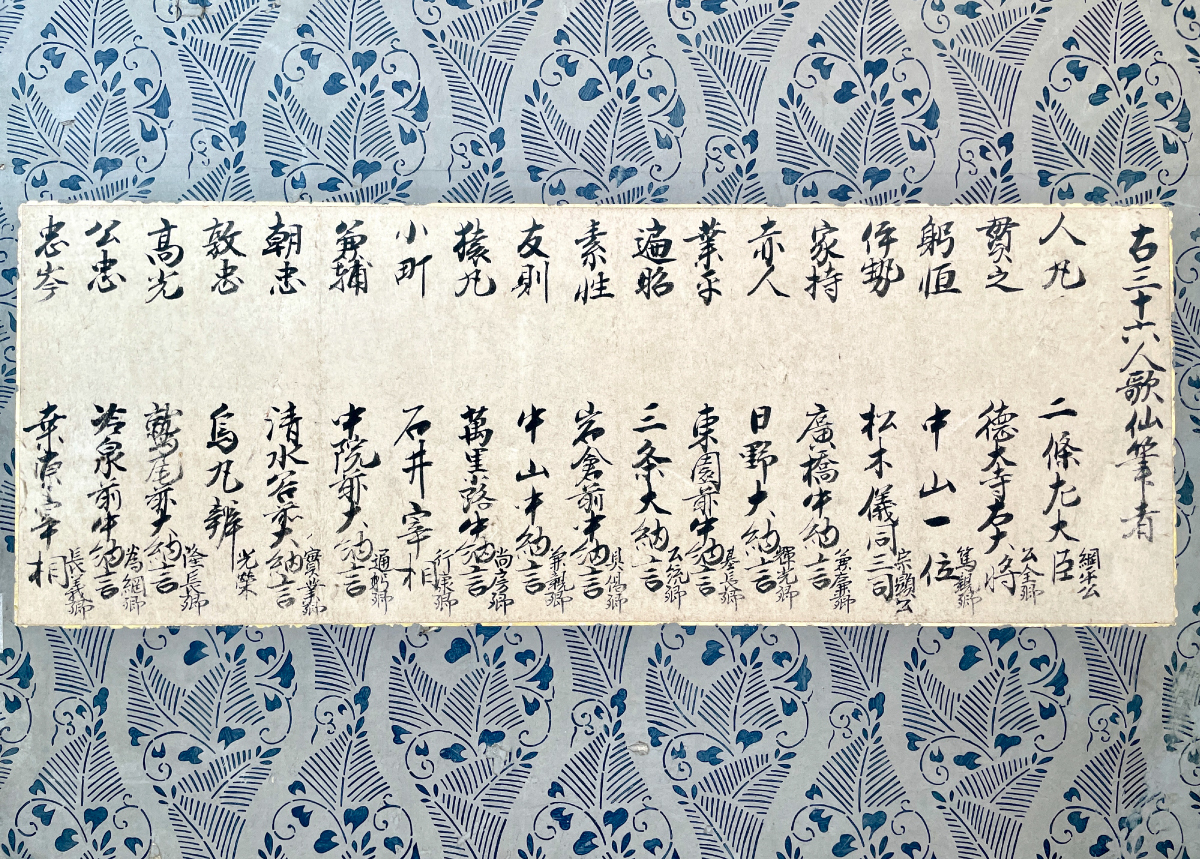 古三十六人歌仙筆者
人丸 二條左大臣 綱平公
貫之 徳大寺右大将 公全卿
躬恒 中山一位 篤親卿
伊勢 松木儀同三司 宗顕公
家持 廣橋中納言 兼廉卿
赤人 日野大納言 輝光卿
業平 東園前中納言 基長卿
遍昭 三条大納言 公統卿
素性 岩倉前中納言 具偈卿
友則 中山中納言 兼親卿
猿丸 萬里小路中納言 尚房卿
小町 石井宰相 行康卿
兼輔 中院前大納言 通躬卿
朝忠 清水谷前大納言 實業卿
敦忠 烏丸辨 光榮
高光 鷲尾前大納言 隆長卿
公忠 冷泉前中納言 為綱卿
忠岑 桒原宰相 長義卿